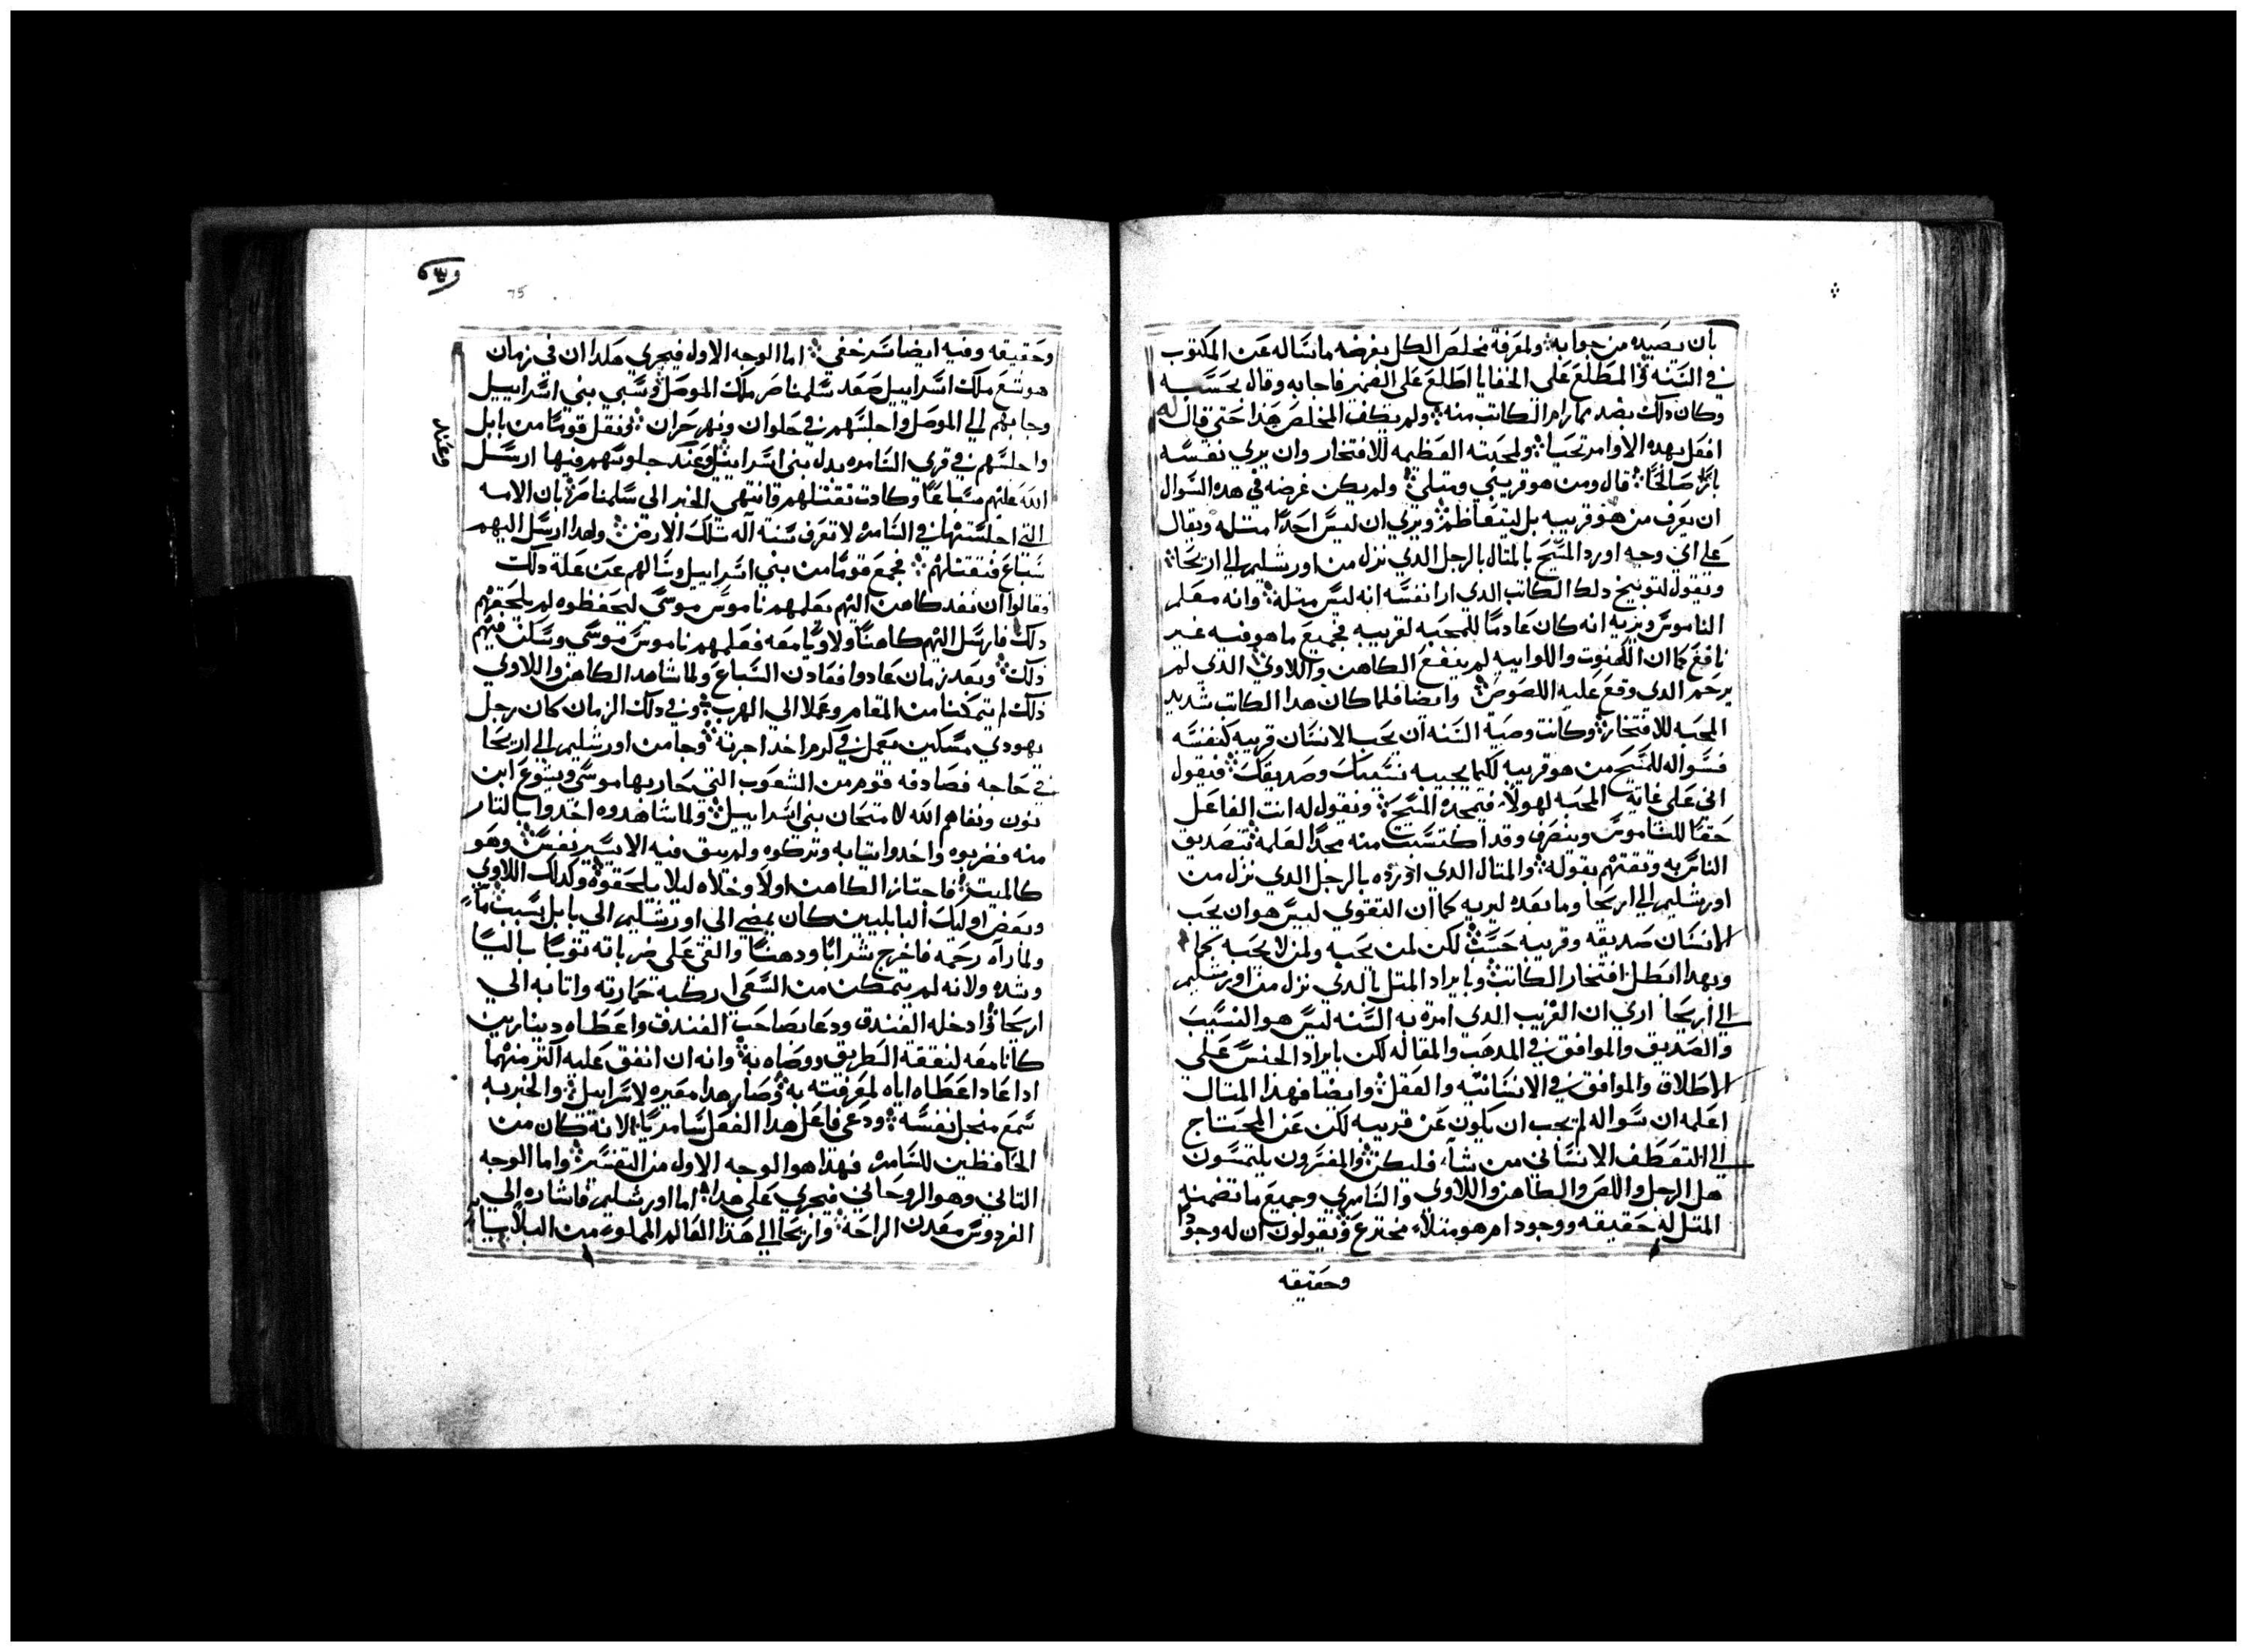 بان يصيده من جوابه ولمعرفة مخلص الكل بغرضه ما نساله عن المكتوب
في السنه والمطلع علي الخفايا اطلع علي الضمير فاجابه وقال بحسبه
وكان دلك بضد مما رام الكاتب منه ولم يكف المخلص هذا حتي قال له
افعل بهده الاوامر تحيا ولمحبته العظيمه للافتخار وان يري نفسه
بارًا صالحًا قال ومن هو قريبي ومتلي ولم يكن غرضه في هده السوال
ان يعرف من هو قريبه بل ليتعاظم ويري ان ليس احدًا متله ويقال
علي اي وجه اورد المسيح بالمتال بالرجل الدي نزل من اورشليم الي اريحا
ونقول لتوبيخ دلك الكاتب الدي ارا نفسه انه ليس متله وانه معلم
الناموس ويريه انه كان عادمًا للمحبه لقريبه فجميع ما هو فيه غير
نافع كما ان الكهنوت واللواييه لم ينفع الكاهن واللاوي الدي لم
يرحم الدي وقع عليه اللصوص وايضا فلما كان هدا الكاتب شديد
المحبه للافتخار وكانت وصية السنه ان يحب الانسان قريبه كنفسه
فسواله للمسيح من هو قريبه لكيما يجيبه نسيبك وصديقك فيقول
اني علي غاية المحبه لهولا فيمجده المسيح ونقول له انت الفاعل
حقًا للناموس وينصرف وقد اكتسبت منه مجدًا لعلمه بتصديق
الناس به وتقتهم بقوله والمتال الدي اورده بالرجل الدي نزل من
اورشليم الي اريحا وما بعده ليريه كما ان التقوي ليس هو ان يحب
الانسان صديقه وقريبه حسب لكن لمن يحبه ولمن لا يحبه
وبهدا ابطل افتخار الكاتب وبايراد المتل بالدي نزل من اورشليم
الي اريحا اري ان القريب الدي امرة به السنه ليس هو النسيب
والصديق والموافق في المدهب والمقاله لكن بايراد الجنس علي
الاطلاق والموافق في الانسانيه والعقل وايضا فهدا المتال
اعلمه ان سواله لم يجب ان يكون عن قريبه لكن عن المحتاج
الي التعطف الانساني من شآء فليكن والمفسرون يلتمسون
هل الرجل واللص والكاهن واللاوي والسامري وجميع ما تضمنه
المتل له حقيقه ووجود ام هو متلاً مخترع ويقولون ان له وجودًا
وحقيقه
75
وحقيقه وفيه ايضا سر خفي اما الوجه الاول فيجري هكدا ان في زمان
هوشع ملك اسراييل صعد سلمناصر ملك الموصل وسبي بني اسراييل
وجابهم الي الموصل واحلسهم في حلوان ونهر حران ونقل قومًا من بابل
واحلسهم في قري السامره بدل بني اسراييل وعند جلوسهم فيها ارسل
الله عليهم سباعًا وكادت تقتلهم فانتهي الخبر الي سلمناصر بان الامه
التي اجلستها في السامره لا تعرف سنة اله تلك الارض ولهدا ارسل اليهم
سباع فتقتلهم فجمع قومًا من بني اسراييل وسالهم عن علة دلك
فقالوا ان نفد كاهن اليهم يعلمهم ناموس موسي ليحفظوه لم يلحقهم
دلك فارسل اليهم كاهنًا ولاويًا معه فعلمهم ناموس موسي وسكن فيهم
ذلك وبعد زمان عادوا فعادت السباع ولما شاهد الكاهن واللاوي
ذلك لم يتمكنا من المقام وعملا الي الهرب وفي دلك الزمان كان رجل
يهودي مسكين يعمل في كرم اخد اجرته وجا من اورشليم الي اريحا
في حاجه فصادفه قوم من الشعوب التي حاربها موسي ويشوع ابن
نون ونفاهم الله لامتحان بني اسراييل ولما شاهدوه اخدوا بالتار
منه فضربوه واخدوا تيابه وتركوه ولم يبق فيه الا يسير نفس وهو
كالميت فاجتاز الكاهن اولاً وخلاه ليلا يلحقوه وكدلك اللاوي
وبعض اوليك البابليين كان يمضي الي اورشليم الي بابل بسبب ما
ولما رآه رحمه فاخرج شرابًا ودهنًا والقي علي ضرباته توبًا باليًا
وشده ولانه لم يتمكن من السعي اركبه حمارته واتا به الي
اريحا وادخله الفندق ودعا بصاحب الفندق واعطاه دينارين
كانا معه لنفقة الطريق ووصاه به وانه ان انفق عليه اكتر منهما
ادا عاد اعطاه اياه لمعرفته به وصار هدا معيره لاسراييل والخبر به
سمع منجل نفسه ودعي فاعل هدا الفعل سامريًا لانه كان من
الحافظين للسامره فهدا هو الوجه الاول من التفسير واما الوجه
التاني وهو الروحاني فيجري علي هدا اما اورشليم فاشاره الي
الفردوس معدن الراحة واريحا الي هدا العالم المملوء من البلايا
وعند